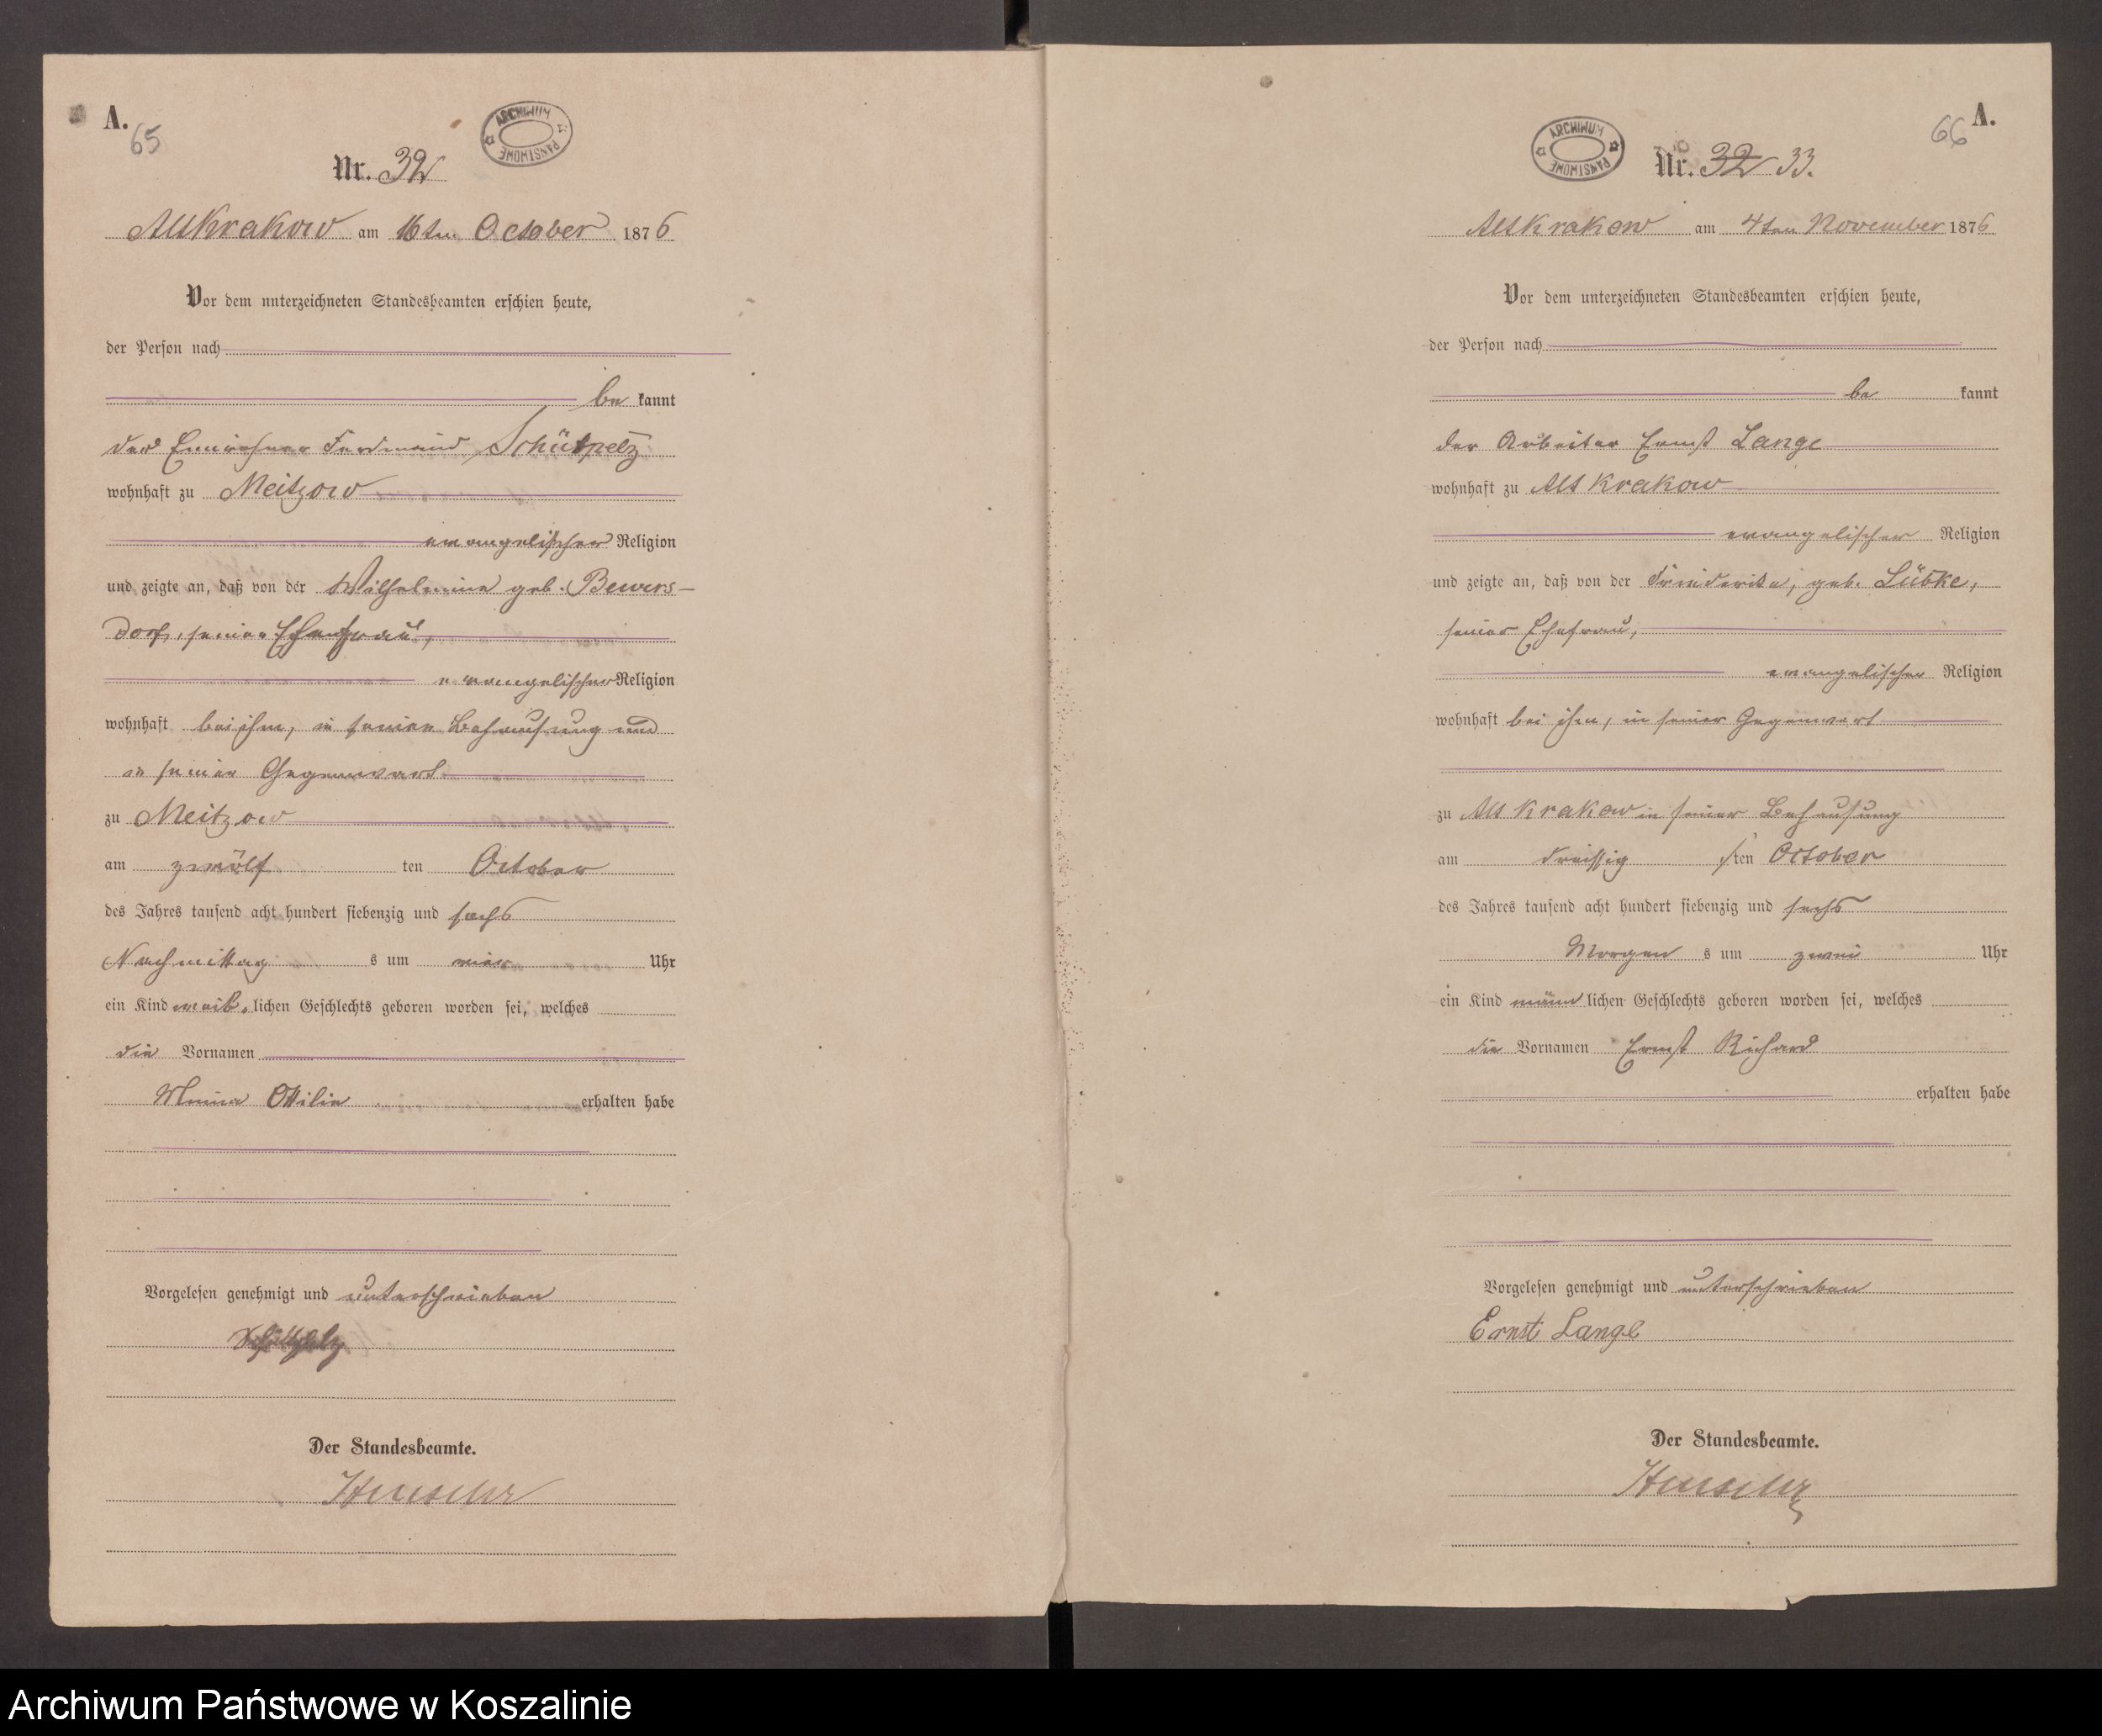 A.
65
ARCHIWUM PAŃSTWOWE
Nr. 32
Alt Krakow am 16ten October 1876
Vor dem unterzeichneten Standesbeamten erschien heute,
der Person nach
be kannt
der Einwohner Ferdinand Schütpelz
wohnhaft zu Meitzow
evangelischer Religion
und zeigte an, daß von der Wilhelmine geb. Bewers-
dorf, seiner Ehefrau,
evangelischer Religion
wohnhaft bei ihm, in seiner Behausung und
in seiner Gegenwart
zu Meitzow
am zwölf ten October
des Jahres tausend acht hundert siebenzig und sechs
Nachmittag s um vier Uhr
ein Kind weib lichen Geschlechts geboren worden sei, welches
die Vornamen
Ottilie erhalten habe
Vorgelesen genehmigt und unterschrieben
Der Standesbeamte.
A.
66
ARCHIWUM PAŃSTWOWE
Nr. 32 33.
Alt Krakow am 4ten November 1876
Vor dem unterzeichneten Standesbeamten erschien heute,
der Person nach
be kannt
der Arbeiter Ernst Lange
wohnhaft zu Alt Krakow
evangelischer Religion
und zeigte an, daß von der Friederike, geb. Lübke,
seiner Ehefrau,
evangelischer Religion
wohnhaft bei ihm, in seiner Gegenwart
zu Alt Krakow in seiner Behausung
am dreissig sten October
des Jahres tausend acht hundert siebenzig und sechs
Morgen s um zwei Uhr
ein Kind männ lichen Geschlechts geboren worden sei, welches
die Vornamen Ernst Richard
erhalten habe
Vorgelesen genehmigt und unterschrieben
Ernst Lange
Der Standesbeamte.
Archiwum Państwowe w Koszalinie